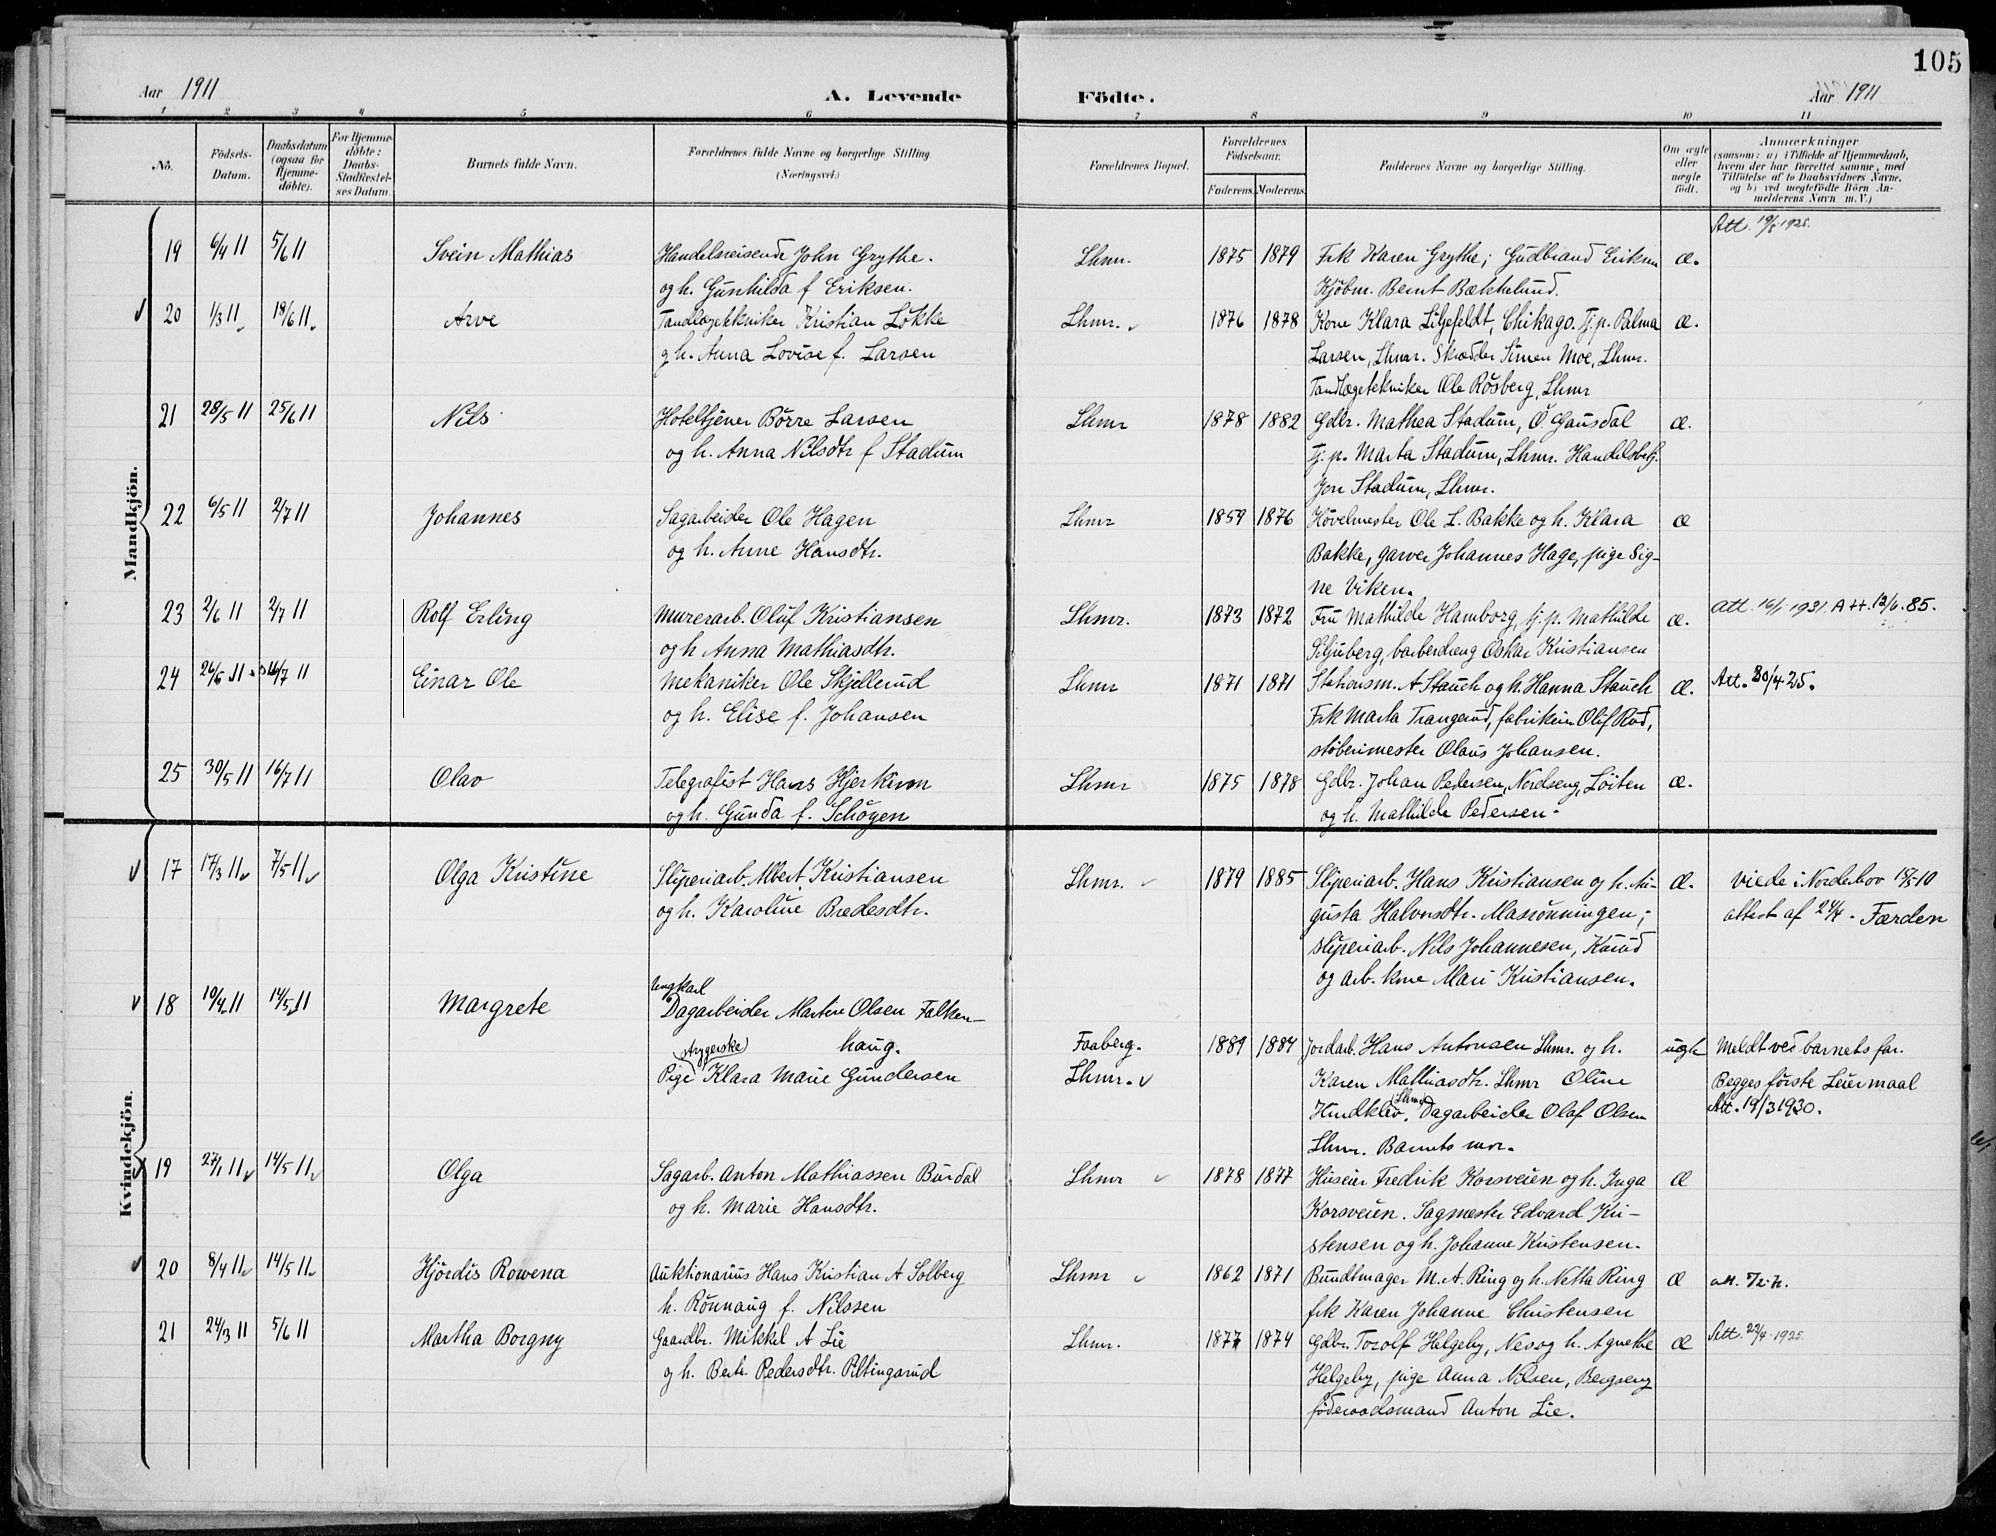 105
Aar 1911 A. Levende Födte. Aar 1911
1 2 3 4 5 6 7 8 9 10 11
No. Födsels-Datum. Daabsdatum (ogsaa for Hjemmedöbte). For Hjemmedöbte: Daabs-Stadfæstelses Datum. Barnets fulde Navn. Forældrenes fulde Navne og borgerlige Stilling (Næringsvei.) Forældrenes Bopæl. Forældrenes Födselsaar. Faderens. Moderens. Faddernes Navne og borgerlige Stilling. Om ægte eller uægte födt. Anmærkninger (saasom: a) i Tilfælde af Hjemmedaab, hvem der har forrettet samme, med Tilföielse af to Daabsvidners Navne, og b) ved uægtefödte Börn Anmelderens Navn m. V.)
Mandkjön.
Att. 19/8 1925.
19 6/4 11 5/6 11 Svein Mathias Handelsreisende John Grythe. Lhmr. 1875 1879 Frk Karen Grythe; Gudbrand Eriksen æ.
og h. Gunhilda f Eriksen. Kjöbm. Bernt Bækkelund.
20 1/3 11 18/6 11 Arve Tandlægetekniker Kristian Lökke Lhmr. 1876 1878 Kone Klara Liljefeldt, Chikago. Tj.p. Palma æ.
g h. Anna Lovise f. Larsen Larsen, Lhmr. Skrædder Simen Moe, Lhmr.
Tandlægetekniker Ole Rösberg, Lhmr
21 28/5 11 25/6 11 Nils Hoteltjener Börre Larsen Lhmr 1878 1882 Gdbr. Mathea Stadum, Ö. Gausdal æ.
og h. Anna Nilsdtr f Stadum Tj.p. Marta Stadum, Lhmr. Handelsbetj.
Jon Stadum, Lhmr.
22 6/5 11 2/7 11 Johannes Sagarbeider Ole Hagen Lhmr 1859 1876 Hövelmester Ole L. Bakke og h. Klara æ
og h. Anne Hansdtr. Bakke, garver Johannes Hage, pige Sig-
ne Viken.
23 2/6 11 2/7 11 Rolf Erling Murerarb. Oluf Kristiansen Lhmr. 1873 1872 Fru Mathilde Hamborg, tj.p. Mathilde æ. Att. 16/1 1931. Att. 12/6. 85.
og h Anna Mathiasdtr. Siljuberg, barberdreng Oskar Kristiansen
24 26/5 11 16/7 11 Einar Ole Mekaniker Ole Skjellerud Lhmr 1871 1871 Stationsm. A Stauch og h. Hanna Stauch æ. Att. 30/4 25.
og h. Elise f. Johansen Frk Marta Trangerud, fabrikeier Oluf Rud,
stöberimester Olaus Johansen.
25 30/5 11 16/7 11 Olav Telegrafist Hans Hjerkinn Lhmr 1875 1878 Gdbr. Johan Pedersen, Nordseng, Löiten æ.
og h. Gunda f. Schögen og h. Mathilde Pedersen-
Kvindekjön.
17 17/3 11 7/5 11 Olga Kristine Sliperiarb. Albert Kristiansen Lhmr. 1879 1885 Sliperiarb. Hans Kristiansen og h. Au- æ. viede i Norderhov 15/5 10
og h. Karoline Bredesdtr. gusta Halvorsdtr. Masrönningen; attest af 24/4 - Færden
sliperiarb. Nils Johannesen,
og arb. kone Mari Kristiansen.
18 10/4 11 14/5 11 Margrete Ungkarl
Dagarbeider Martin Olsen Falken-
haug. Faaberg. 1889 1884 Jordarb. Hans Antonsen Lhmr. og h. uægte Meldt ved barnets far.
Strygerske
Pige Klara Marie Gundersen Lhmr. Karen Mathiasdtr. Lhmr Oline Begges förste Leiermaal
(Lhmr) Dagarbeider Olaf Olsen Att. 19/3 1930.
Lhmr. Barnets mor.
19 27/1 11 14/5 11 Olga Sagarb. Anton Mathiassen Burdal Lhmr 1878 1877 Huseier Fredrik Korsveien og h. Inga æ
og h. Marie Hansdtr. Korsveien. Sagmester Edvard Kri-
stensen og h. Johanne Kristensen.
20 8/4 11 14/5 11 Hjördis Rowena Auktionarius Hans Kristian A Solberg Lhmr 1862 1871 Bundtmager M. A. Ring og h. Netta Ring æ
h. Rönnaug f. Nilssen frk Karen Johanne Christensen
21 24/3 11 5/6 11 Martha Borgny Gaardbr. Mikkel A Lie Lhmr. 1877 1874 Gdbr. Torolf Helgeby, Nes og h. Agnethe æ Att. 22/4 1925.
og h. Berte Pedersdtr. Piltingsrud Helgeby, pige Anna Nilsen, Bergseng
föderaadsmand Anton Lie.